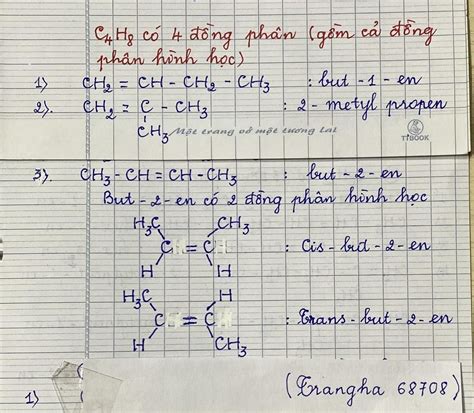 C₄H₈ có 4 đồng phân (gồm cả đồng
phân hình học)
1) CH₂ = CH - CH₂ - CH₃ : but - 1 - en
2). CH₂ = C - CH₃ : 2 - metyl propen
CH₃
Một trang vở một tương lai
TIBOOK
3). CH₃ - CH = CH - CH₃ : but - 2 - en
But - 2 - en có 2 đồng phân hình học
H₃C CH₃
C = C : Cis - but - 2 - en
H H
H₃C H
C = C : Trans - but - 2 - en
H CH₃
1)
(Trangha 68708)